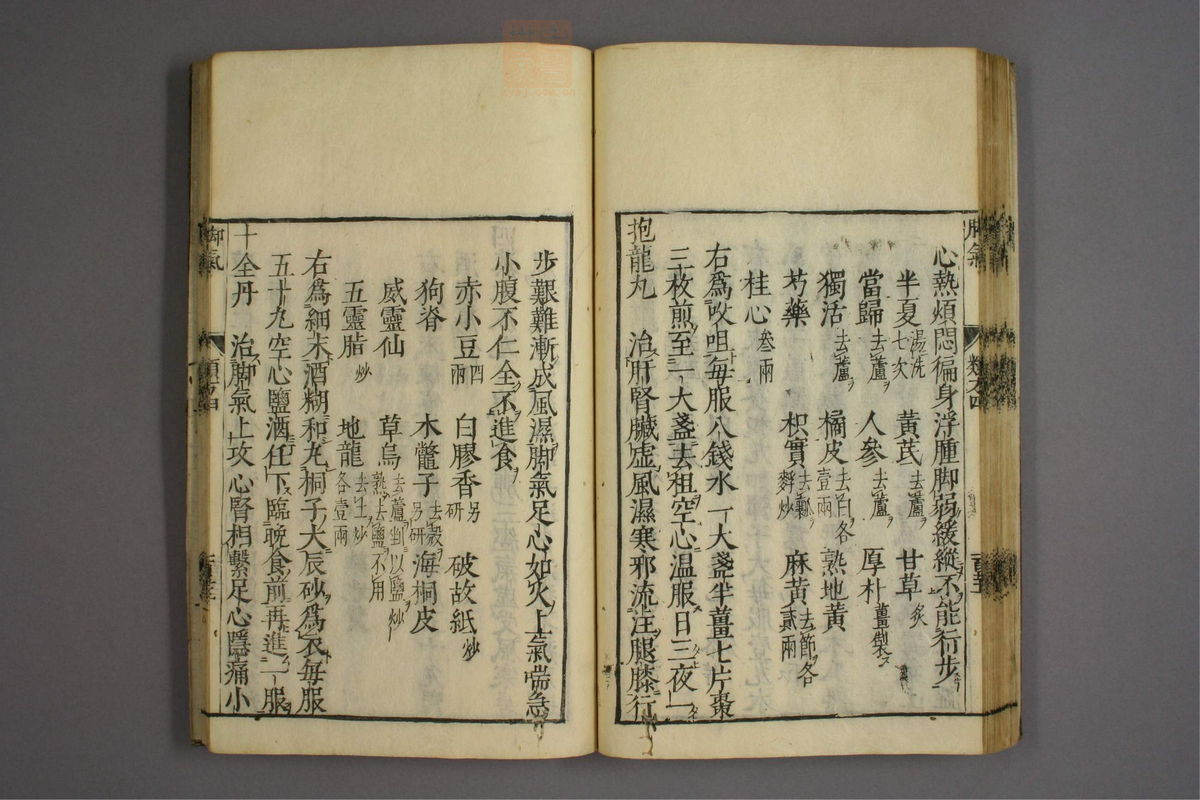 心熱煩悶徧身浮腫脚弱緩縱不能行步
半夏湯洗七次 黃芪去蘆 甘草炙
當歸去蘆 人參去蘆 厚朴薑製
獨活去蘆 橘皮去白各壹兩 熟地黃
芍藥 枳實去瓤麸炒 麻黃去節各貳兩
桂心叁兩
右爲㕮咀每服八錢水一大盞半薑七片棗
三枚煎至一大盞去柤空心温服日三夜一
抱龍丸 治肝腎臟虛風濕寒邪流注腿膝行
步艱難漸成風濕脚氣足心如火上氣喘急
小腹不仁全不進食
赤小豆四兩 白膠香另研 破故紙炒
狗脊 木鼈子去殼另研 海桐皮
威靈仙 草烏去蘆剉以鹽炒熟去鹽不用
五靈脂炒 地龍去土炒各壹兩
右爲細末酒糊和丸桐子大辰砂爲衣每服
五十丸空心鹽酒任下臨晚食前再進一服
十全丹 治脚氣上攻心腎相繫足心隱痛小
脚氣